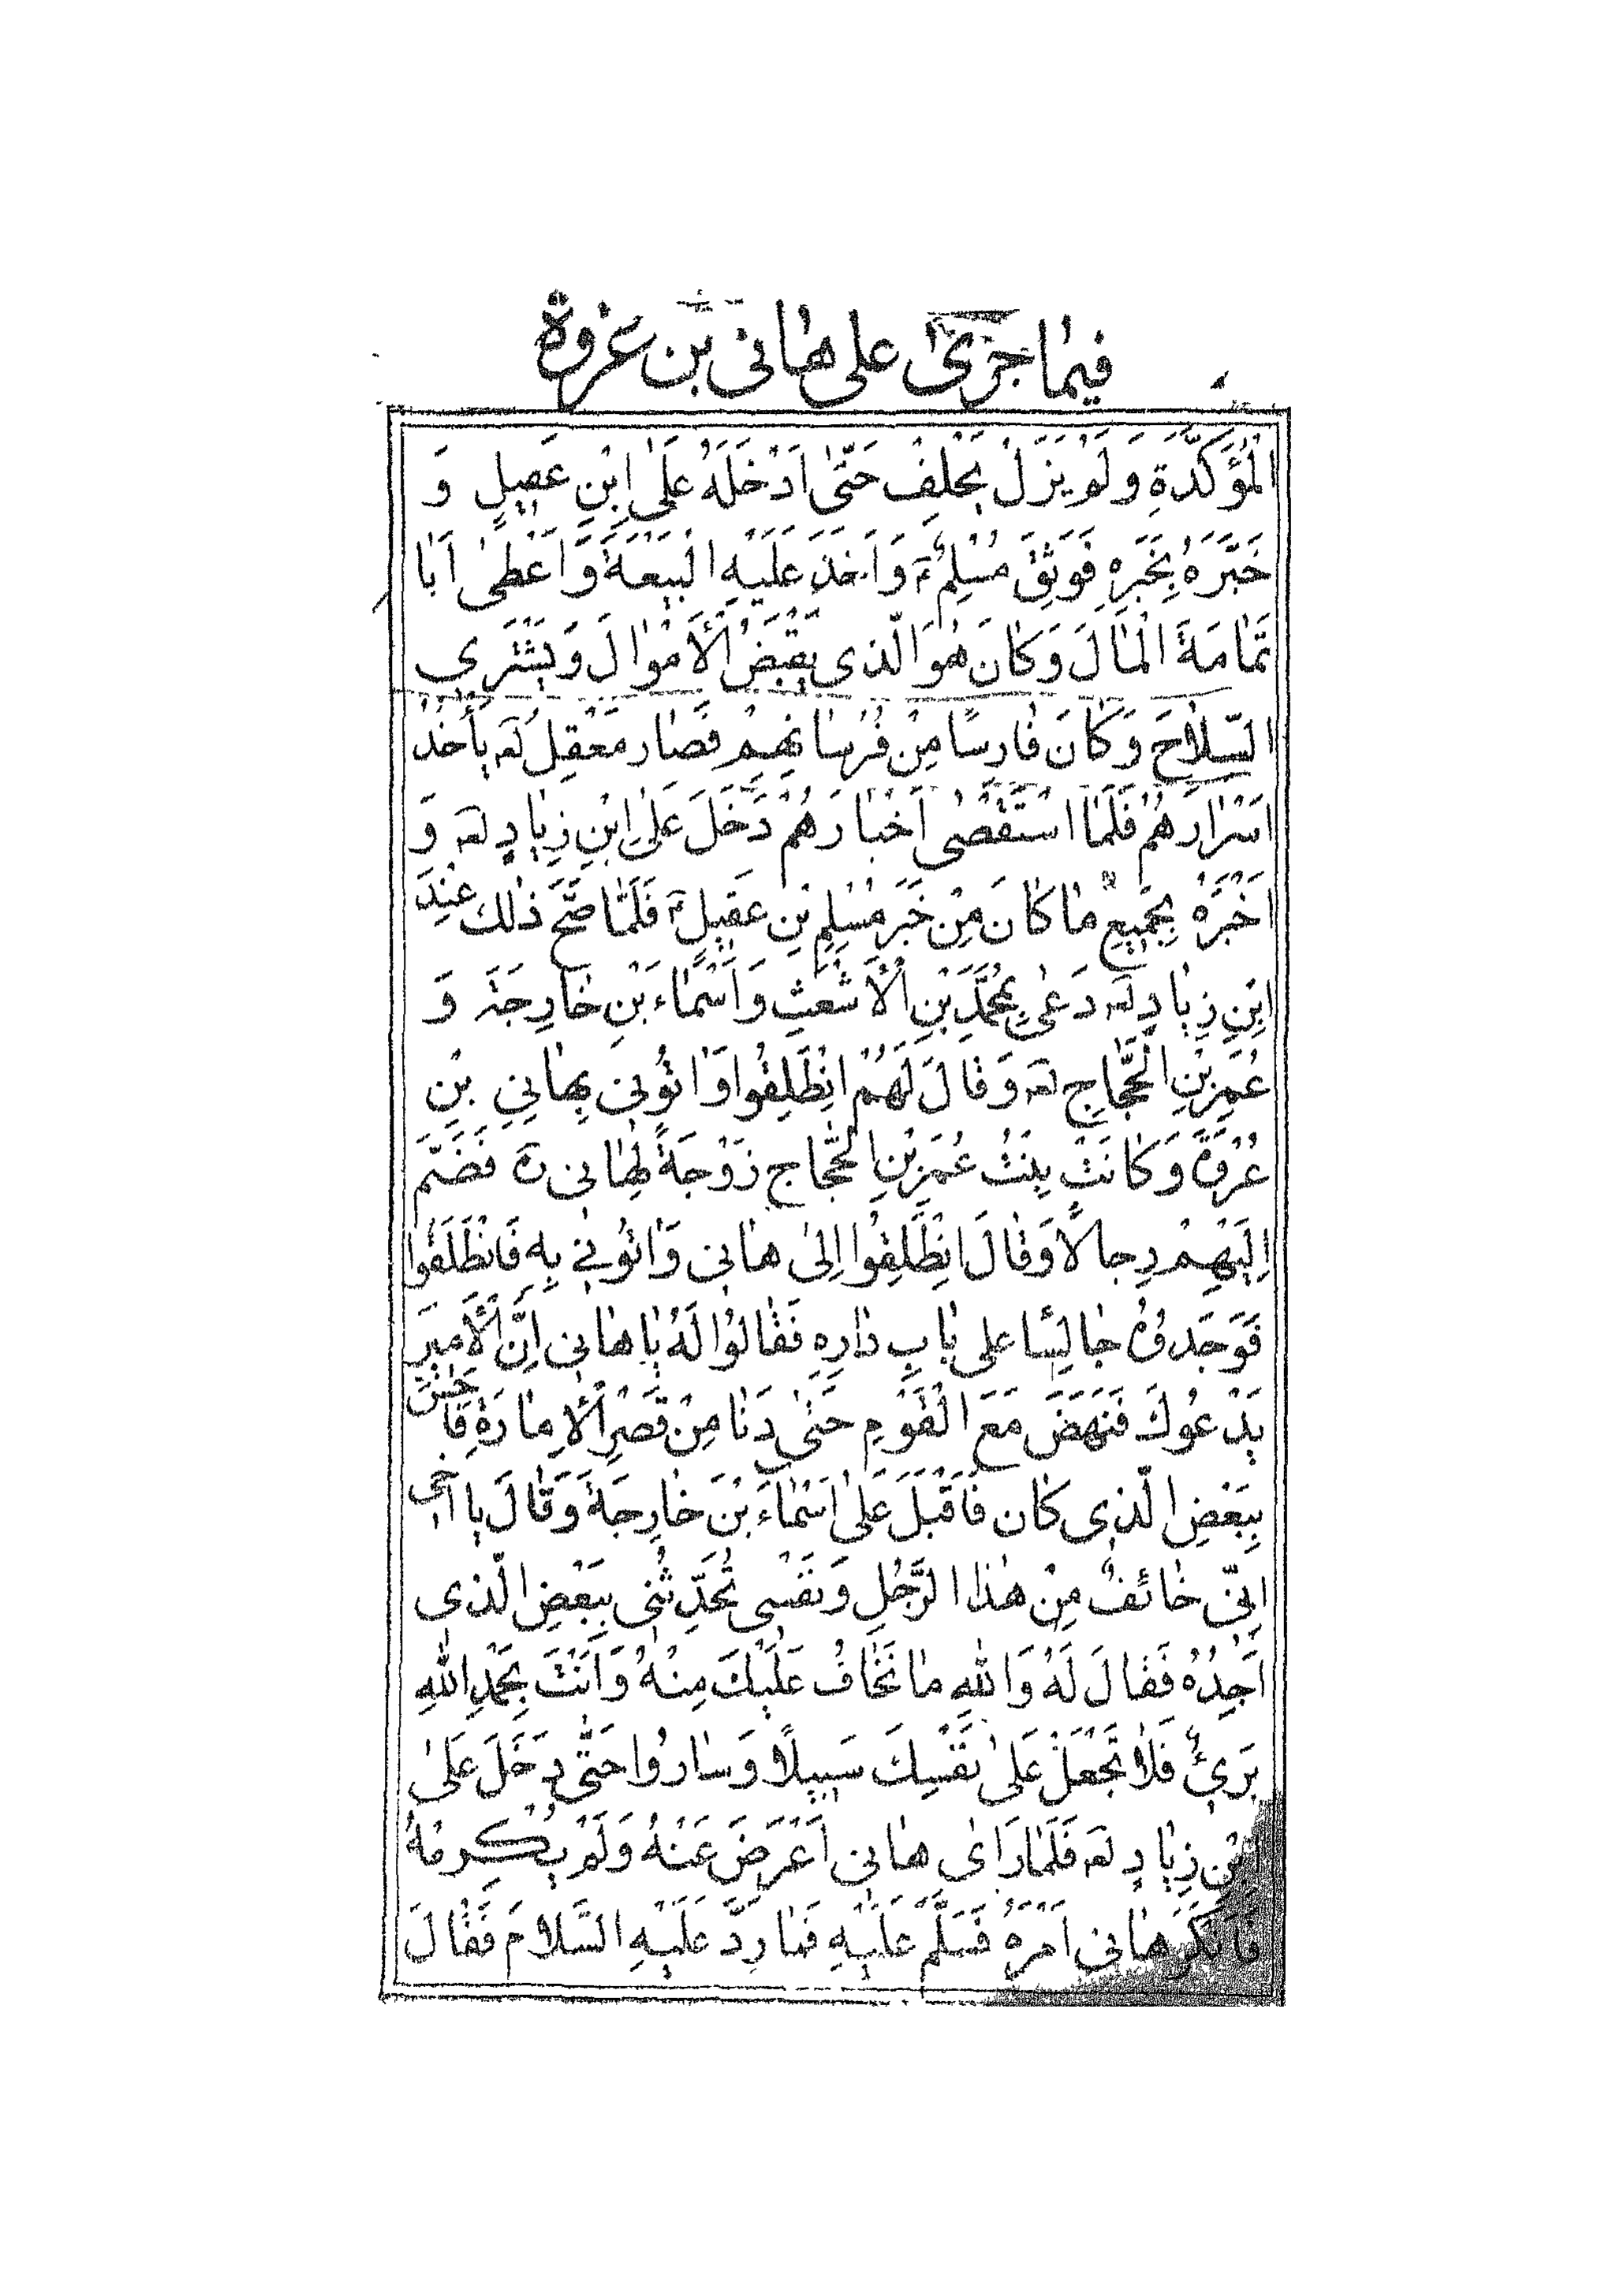 فيما جرى على هانى بن عروة
الْمُؤَكَّدَةِ وَلَمْ يَزَلْ يَحْلِفُ حَتّىٰ اَدْخَلَهُ عَلَى ابْنِ عَقيلٍ وَ
خَبَّرَهُ بِخَبَرِهِ فَوَثِقَ مُسْلِمٌ وَاَخَذَ عَلَيْهِ الْبَيْعَةَ وَاَعْطىٰ اَبَا
ثَمَامَةَ الْمَالَ وَكَانَ هُوَ الَّذى يَقْبَضُ الْأَمْوالَ وَيَشْتَرى
السِّلاحَ وَكَانَ فارِسًا مِنْ فُرْسانِهِمْ فَصارَ مَعْقِلُ لعه يَأْخُذُ
اَسْرارَهُمْ فَلَمَّا اسْتَقْصىٰ اَخْبارَهُمْ دَخَلَ عَلَى ابْنِ زِيادٍ لعه وَ
اَخْبَرَهُ بِجَميعِ ما كانَ مِنْ خَبَرِ مُسْلِمِ بْنِ عَقيلٍ فَلَمّا صَحَّ ذٰلِكَ عِنْدَ
ابْنِ زِيادٍ لعه دَعىٰ بِمُحَمَّدِ بْنِ الْأَشْعَثِ وَاَسْماءَ بْنِ خارِجَةَ وَ
عُمَرِ بْنِ الْحَجّاجِ لعه وَقالَ لَهُمْ انْطَلِقُوا وَاْتُونى بِهانِي بْنِ
عُرْوَةَ وَكانَتْ بِنْتُ عُمَرِ بْنِ الْحَجّاجِ زَوْجَةً لِهانى ره فَضَمَّ
اِلَيْهِمْ رِجالًا وَقالَ انْطَلِقُوا اِلىٰ هانى وَاْتُونى بِهِ فَانْطَلَقُوا
فَوَجَدوُهُ جالِسًا على بابِ دارِهِ فَقالُوا لَهُ يا هانى اِنَّ الْأَميرَ
يَدْعُوكَ فَنَهَضَ مَعَ الْقَوْمِ حَتّىٰ دَنا مِنْ قَصْرِ الْأِمارَةِ فَاَحَسَّ
بِبَعْضِ الَّذى كانَ فَاَقْبَلَ عَلىٰ اَسْماءَ بْنَ خارِجَةَ وَقالَ يا اَخى
اِنّى خائِفٌ مِنْ هٰذَا الرَّجُلِ وَنَفْسى تُحَدِّثُنى بِبَعْضِ الَّذى
اَجِدُهُ فَقالَ لَهُ وَاللّٰهِ ما نَخافُ عَلَيْكَ مِنْهُ وَاَنْتَ بِحَمْدِ اللّٰهِ
بَرىءٌ فَلا تَجْعَلْ عَلىٰ نَفْسِكَ سَبيلًا وَسارُوا حَتّى دَخَلَ عَلىٰ
ابْنِ زِيادٍ لعه فَلَمّا رَاىٰ هانى اَعْرَضَ عَنْهُ وَلَمْ يُكْرِمْهُ
فَاَنْكَرَ هانى اَمْرَهُ فَسَلَّمَ عَلَيْهِ فَما رَدَّ عَلَيْهِ السَّلامَ فَقالَ